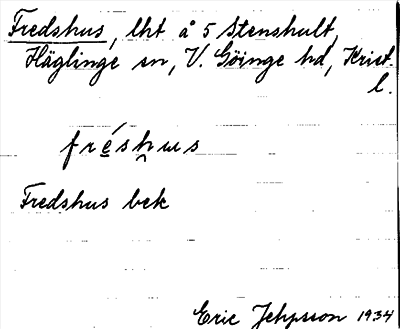 Fredshus, lht å 5 Stenshult,
Häglinge sn, V. Göinge hd, Krist.
l.
fréshus
Fredshus bek
Eric Jepsson 1934